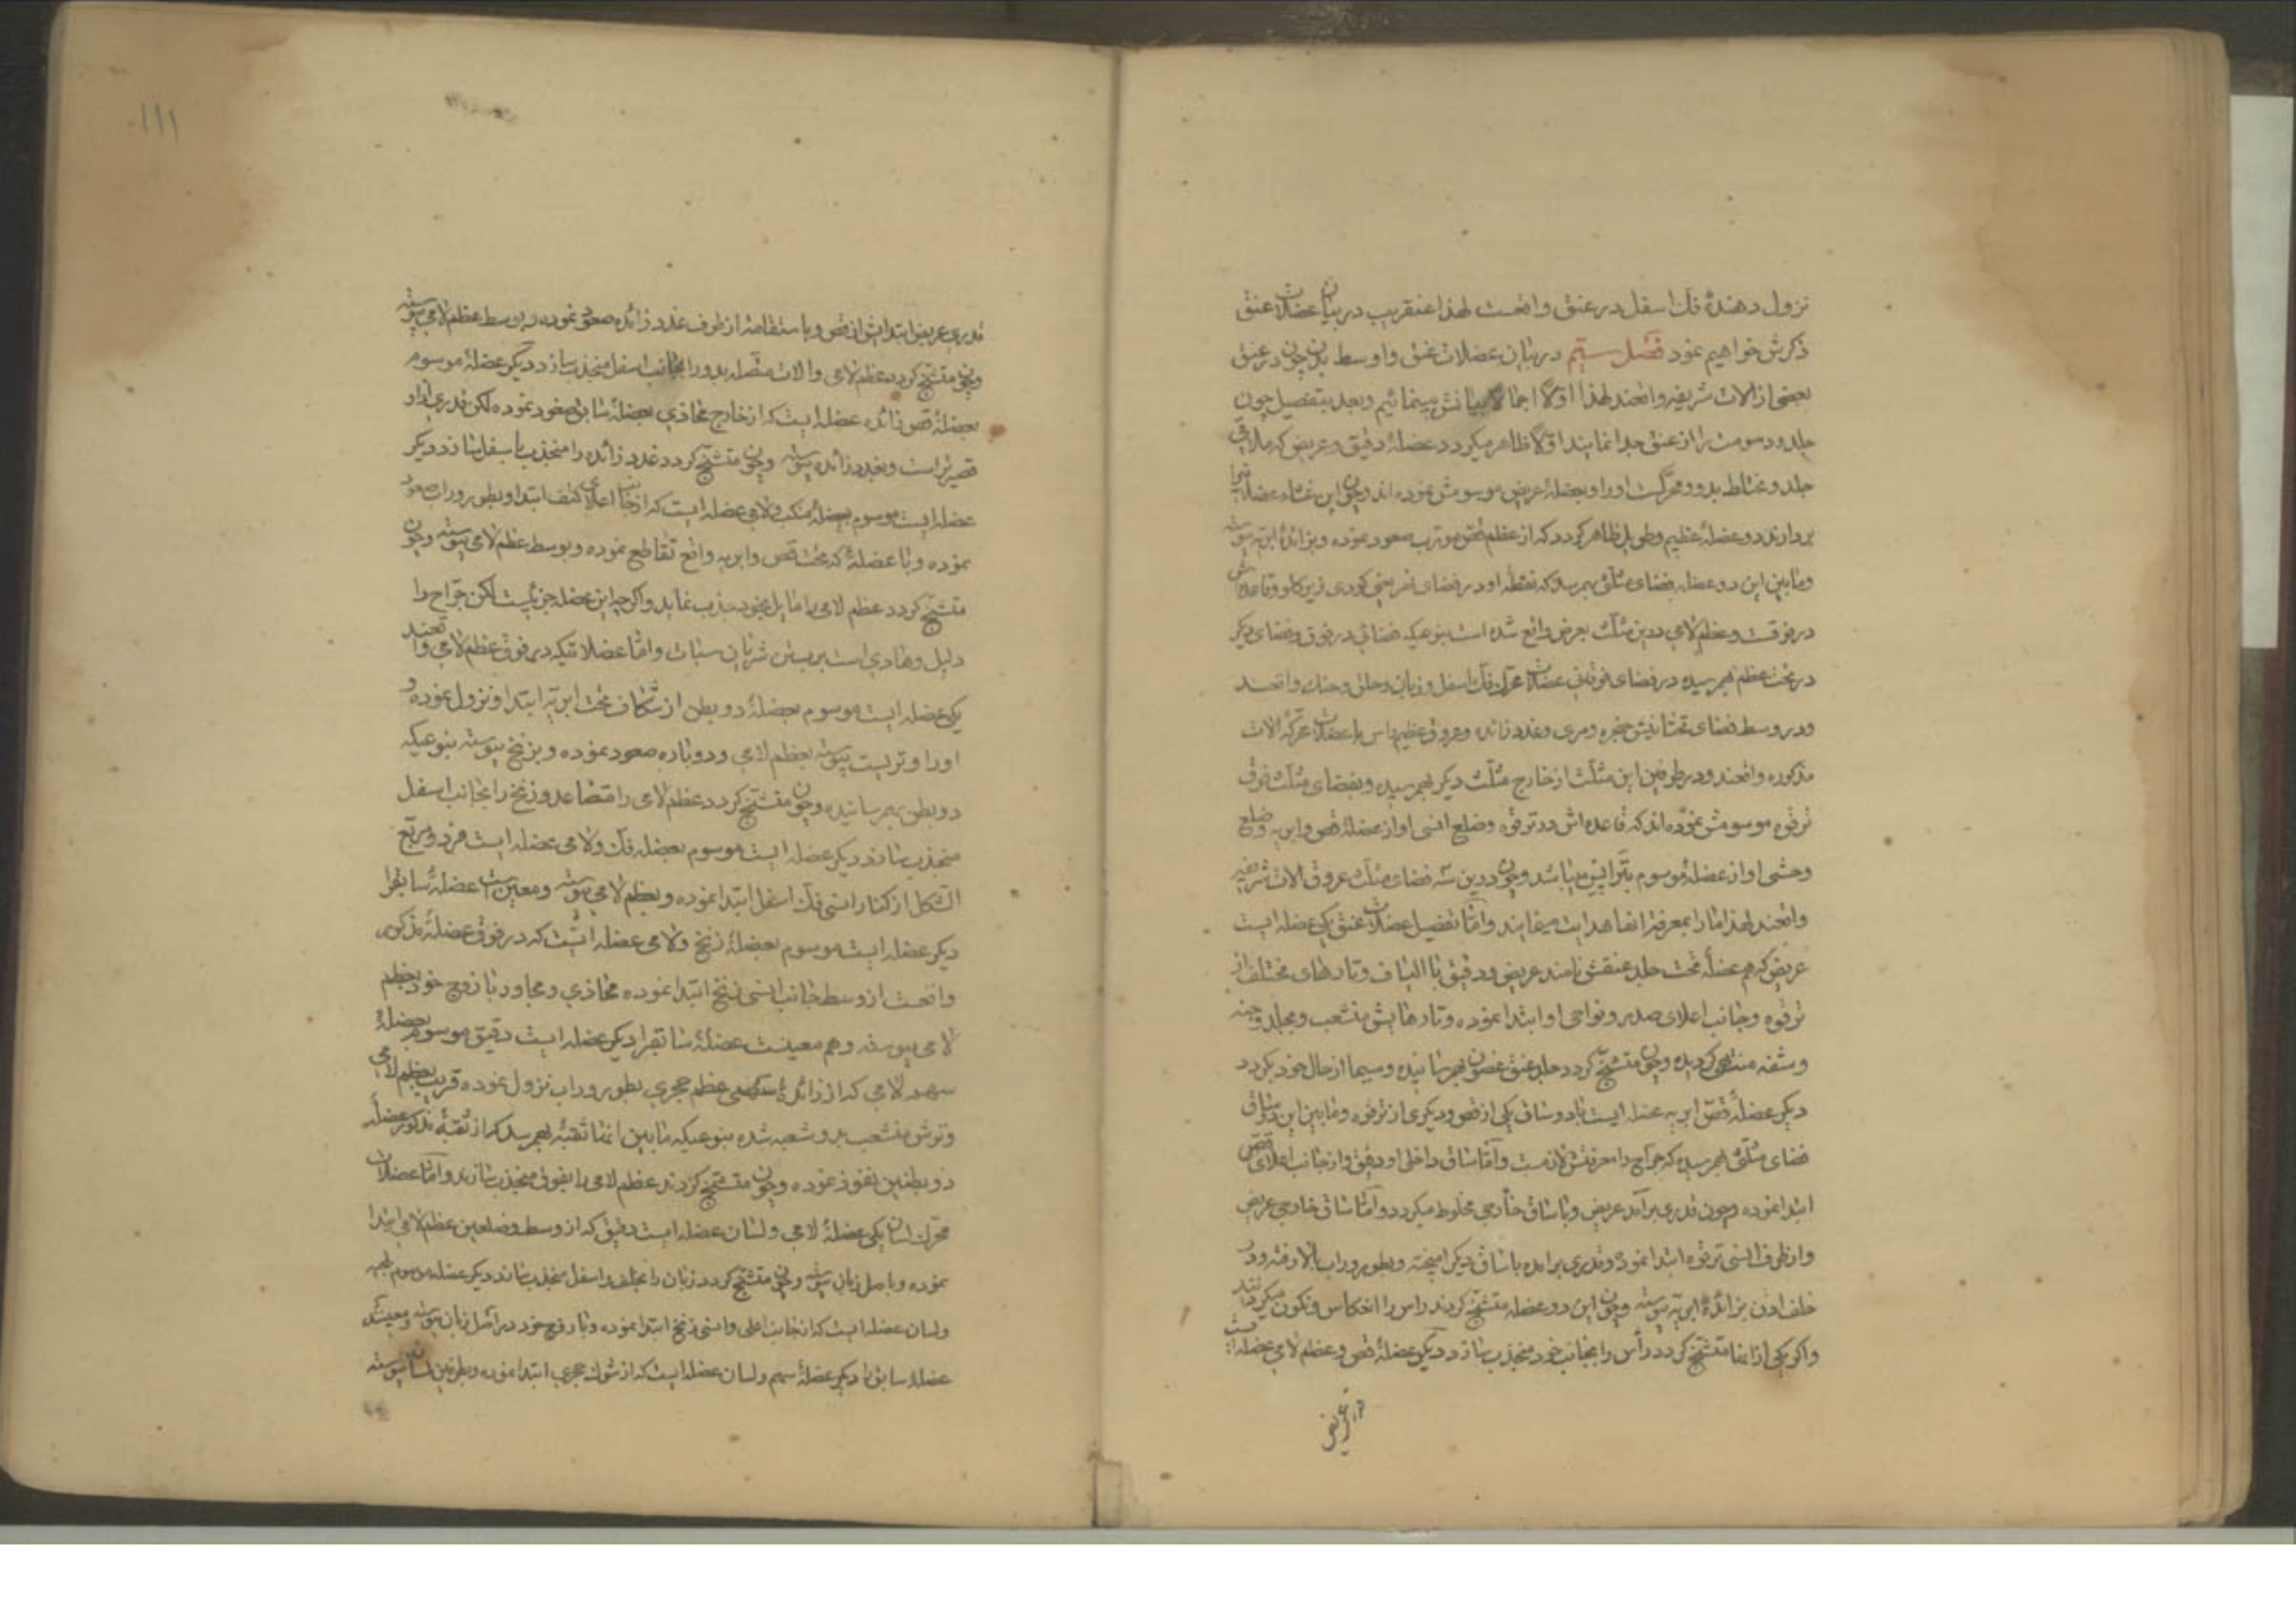 نزول دهندهٔ فک اسفل در عنق واقعست لهذا عنقریب در بیان عضلات عنق
ذکرش خواهیم نمود فصل ستیم در بیان عضلات عنق و اوسط بدن چون در عنق
بعضی از الات شریفه واقعند لهذا اوّلاً اجمالا بیانش مینمائیم و بعد بتفصیل چون
جلد و دسومت را از عنق جدا نمایند اوّلاً ظاهر میکردد عضلهٔ دقیق و عریض که ملاقی
جلد و مختلط بدو و محرکست او را و بعضلهٔ عریض موسومش نموده اند و چون این غشاء عضلانیرا
بردارند دو عضلهٔ عظیم و طویل ظاهر کردد که از عظم قص و ترقوه صعود نموده و بزائدهٔ ابریه پیوسته
و مابین این دو عضله فضای مثلثی بهم رسد که نقطهٔ او در فضای نحر یعنی کودی زیر کلو و قاعده‌اش
در فوقست و عظم لامی درین مثلث بعرض واقع شده است بنوعیکه فضائی در فوق و فضای دیکر
در تحت عظم بهم رسیده در فضای فوقانی عضلات محرک فک اسفل و زبان و حلق و حنک واقعند
و در وسط فضای تحتانیش حنجره و مری و غدد زائده و عروق عظیم راس با عضلات محرکهٔ الات
مذکوره واقعند و در طرفین این مثلث از خارج مثلث دیکر بهم رسیده و بفضای مثلث فوق
ترقوه موسومش نموده اند که قاعده اش در ترقوه و ضلع انسی او از عضلهٔ قص و ابریه و ضلع
وحشی او از عضلهٔ موسوم بتراپیس میباشد و چون درین سه فضای مثلث عروق الات شریفه
واقعند لهذا ما را بمعرفة انها هدایت مینمایند و امّا تفصیل عضلات عنق یکی عضله ایست
عریض که هم عضلهٔ تحت جلد عنقش نامند عریض و دقیق با الیاف و تارهای مختلف از
ترقوه و جانب اعلای صدر و نواحی او ابتدا نموده و تارهایش منشعب و بجلد وجنه
و شفه منتهی کردیده و چون متشنج کردد جلد عنق غضون بهم رسانیده و سیما از حال خود بکردد
دیکر عضلهٔ قص ابریه عضله ایست با دو ساق یکی از قص و دیکری از ترقوه و مابین این دو ساق
فضای مثلثی بهم رسیده که جراح را معرفتش لازمست و امّا ساق داخلی او دقیق و از جانب اعلای قص
ابتدا نموده و چون قدری برآید عریض و با ساق خارجی مخلوط میکردد و امّا ساق خارجی عریض
و از طرف انسی ترقوه ابتدا نموده و قدری برامده با ساق دیکر امیخته و بطور وراب بالا رفته و در
خلف اذن بزائدهٔ ابریه پیوسته و چون این دو عضله متشنج کردند راس را انعکاس و نکون میکردانند
و اکر یکی از انها متشنج کردد رأس را بجانب خود منجذب سازد دیکر عضلهٔ قص و عظم لامی عضله ایست
قدری عریض
۱۱۱
قدری عریض ابتدایش از قص و باستقامة از طرف غدد زائده صعود نموده و بوسط عظم لامی پیوسته
و چون متشنج کردد عظم لامی و الات متصله بدو را بجانب اسفل منجذب سازد دیکر عضلهٔ موسوم
بعضلهٔ قص زائده عضله ایست که از خارج محاذی بعضلهٔ سابق صعود نموده لکن قدری از او
قصیرتر است و بغدد زائده پیوسته و چون متشنج کردد غدد زائده را منجذب باسفل سازد دیکر
عضله ایست موسوم بعضلهٔ منکب و لامی عضله ایست که از جانب اعلای کتف ابتدا و بطور وراب صعود
نموده و با عضلهٔ که تحت قص و ابریه واقع تقاطع نموده و بوسط عظم لامی پیوسته و چون
متشنج کردد عظم لامی را مایل بخود جذب نماید و اکرچه این عضله جزئیست لکن جراح را
دلیل و هادی است بر بستن شریان سبات و امّا عضلاتیکه در فوق عظم لامی واقعند
یکی عضله ایست موسوم بعضلهٔ دو بطن از شکاف تحت ابریه ابتدا و نزول نموده و
او را وتریست پیوسته بعظم لامی و دوباره صعود نموده و بزنخ پیوسته بنوعیکه
دو بطن بهم رسانیده و چون متشنج کردد عظم لامی را متصاعد و زنخ را بجانب اسفل
منجذب سازد دیکر عضله ایست موسوم بعضله فک و لامی عضله ایست فرد و مربع
الشکل از کنار انسی فک اسفل ابتدا نموده و بعظم لامی پیوسته و معین است عضلهٔ سابقرا
دیکر عضله ایست موسوم بعضلهٔ زنخ و لامی عضله ایست که در فوق عضلهٔ مذکور
واقعست از وسط جانب انسی زنخ ابتدا نموده محاذی و مجاور با زوج خود بعظم
لامی پیوسته و هم معینست عضلهٔ سابقرا دیکر عضله ایست دقیق موسوم بعضلهٔ
سهم لامی که از زائدهٔ سهمی عظم حجری بطور وراب نزول نموده قریب بعظم لامی
وترش منشعب بدو شعبه شده بنوعیکه مابین انها ثقبهٔ بهم رسد که از ثقبهٔ مذکور عضلهٔ
دو بطنین نفوذ نموده و چون متشنج کردند عظم لامی را بفوق منجذب سازند و امّا عضلات
محرک لسان یکی عضلهٔ لامی و لسان عضله ایست دقیق که از وسط و ضلعین عظم لامی ابتدا
نموده و باصل زبان پیوسته و چون متشنج کردد زبان را بخلف و اسفل منجذب سازد دیکر عضله موسوم بزنخ
و لسان عضله ایست که از جانب اعلی و انسی زنخ ابتدا نموده و با زوج خود در اصل زبان پیوسته و معینست
عضلهٔ سابق را دیکر عضلهٔ سهم و لسان عضله ایست که از شوک حجری ابتدا نموده و بطرفین لسان پیوسته